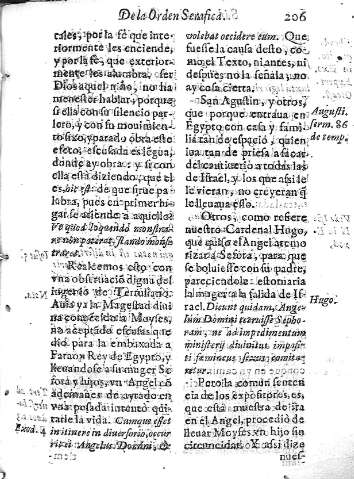 De la Orden Serafica.
206
tales, por la fè que inte-
riormente les enciende,
y por la fè, que exterior-
mente les alumbra, ser
Dios aquel niño, no ha
menester hablar, porque
si ella con su silencio par-
lero, y con su mouimien-
to fixo, y parado obra este
efeto, escusada es legua,
donde ay obra: y si con
ella està diziendo, que el
es, hic est: de que sirue pa-
labra, pues en primer lu-
gar se atiende a aquello?
Ve quod loquendo
tra
Realcemos esto con
vna obseruacion digna del
ingenio de Tertuliano.
Auia ya la Magestad diui
na
aceptado escusas que
dio para la embaxada a
Faraon Rey de Egypto, y
lleuandose a su muger Se
fora y hijos, vn Angel cõ
ademanes de ayrado en
vna posada intentò qui-
tarle la vida. Cumque esset
in itinere in diuersorio, occur
rit ei Angelus Domini, &
Exod. 4
volebat occidere eum. Que
fuesse la causa desto, co-
mo el Texto, ni antes, ni
despues no la señala, no
ay cosa cierta.
San Agustin, y otros,
que porque entraua en
Egypto con casa y fami-
lia tan de espacio, quien
iua tan de priesa a sacar
del cautiuerio a todas las
de Israel, y los que assi le
le vieran, no creyeran q̃
le lleuaua esso.
Augusti.
serm. 86
de temp.
Otros, como refiere
nuestro Cardenal Hugo,
que quiso el Angel atemo
rizar a Sefora, para que
se boluiesse con su padre,
pareciendole: estoruaria
la muger a la salida de Is-
rael. Dicunt quidam, Ange-
lum Domini terruisse Sepho-
ram, ne ad impedimentum
ministerij diuinitus imposi-
ti fœmineus sexus comita-
retur.
Hugo.
Pero la comun senten
cia de los expositores, es,
que esta muestra de ira
en el Angel, procediò de
lleuar Moyses vn hijo sin
circuncidar. Y assi dize
nues-